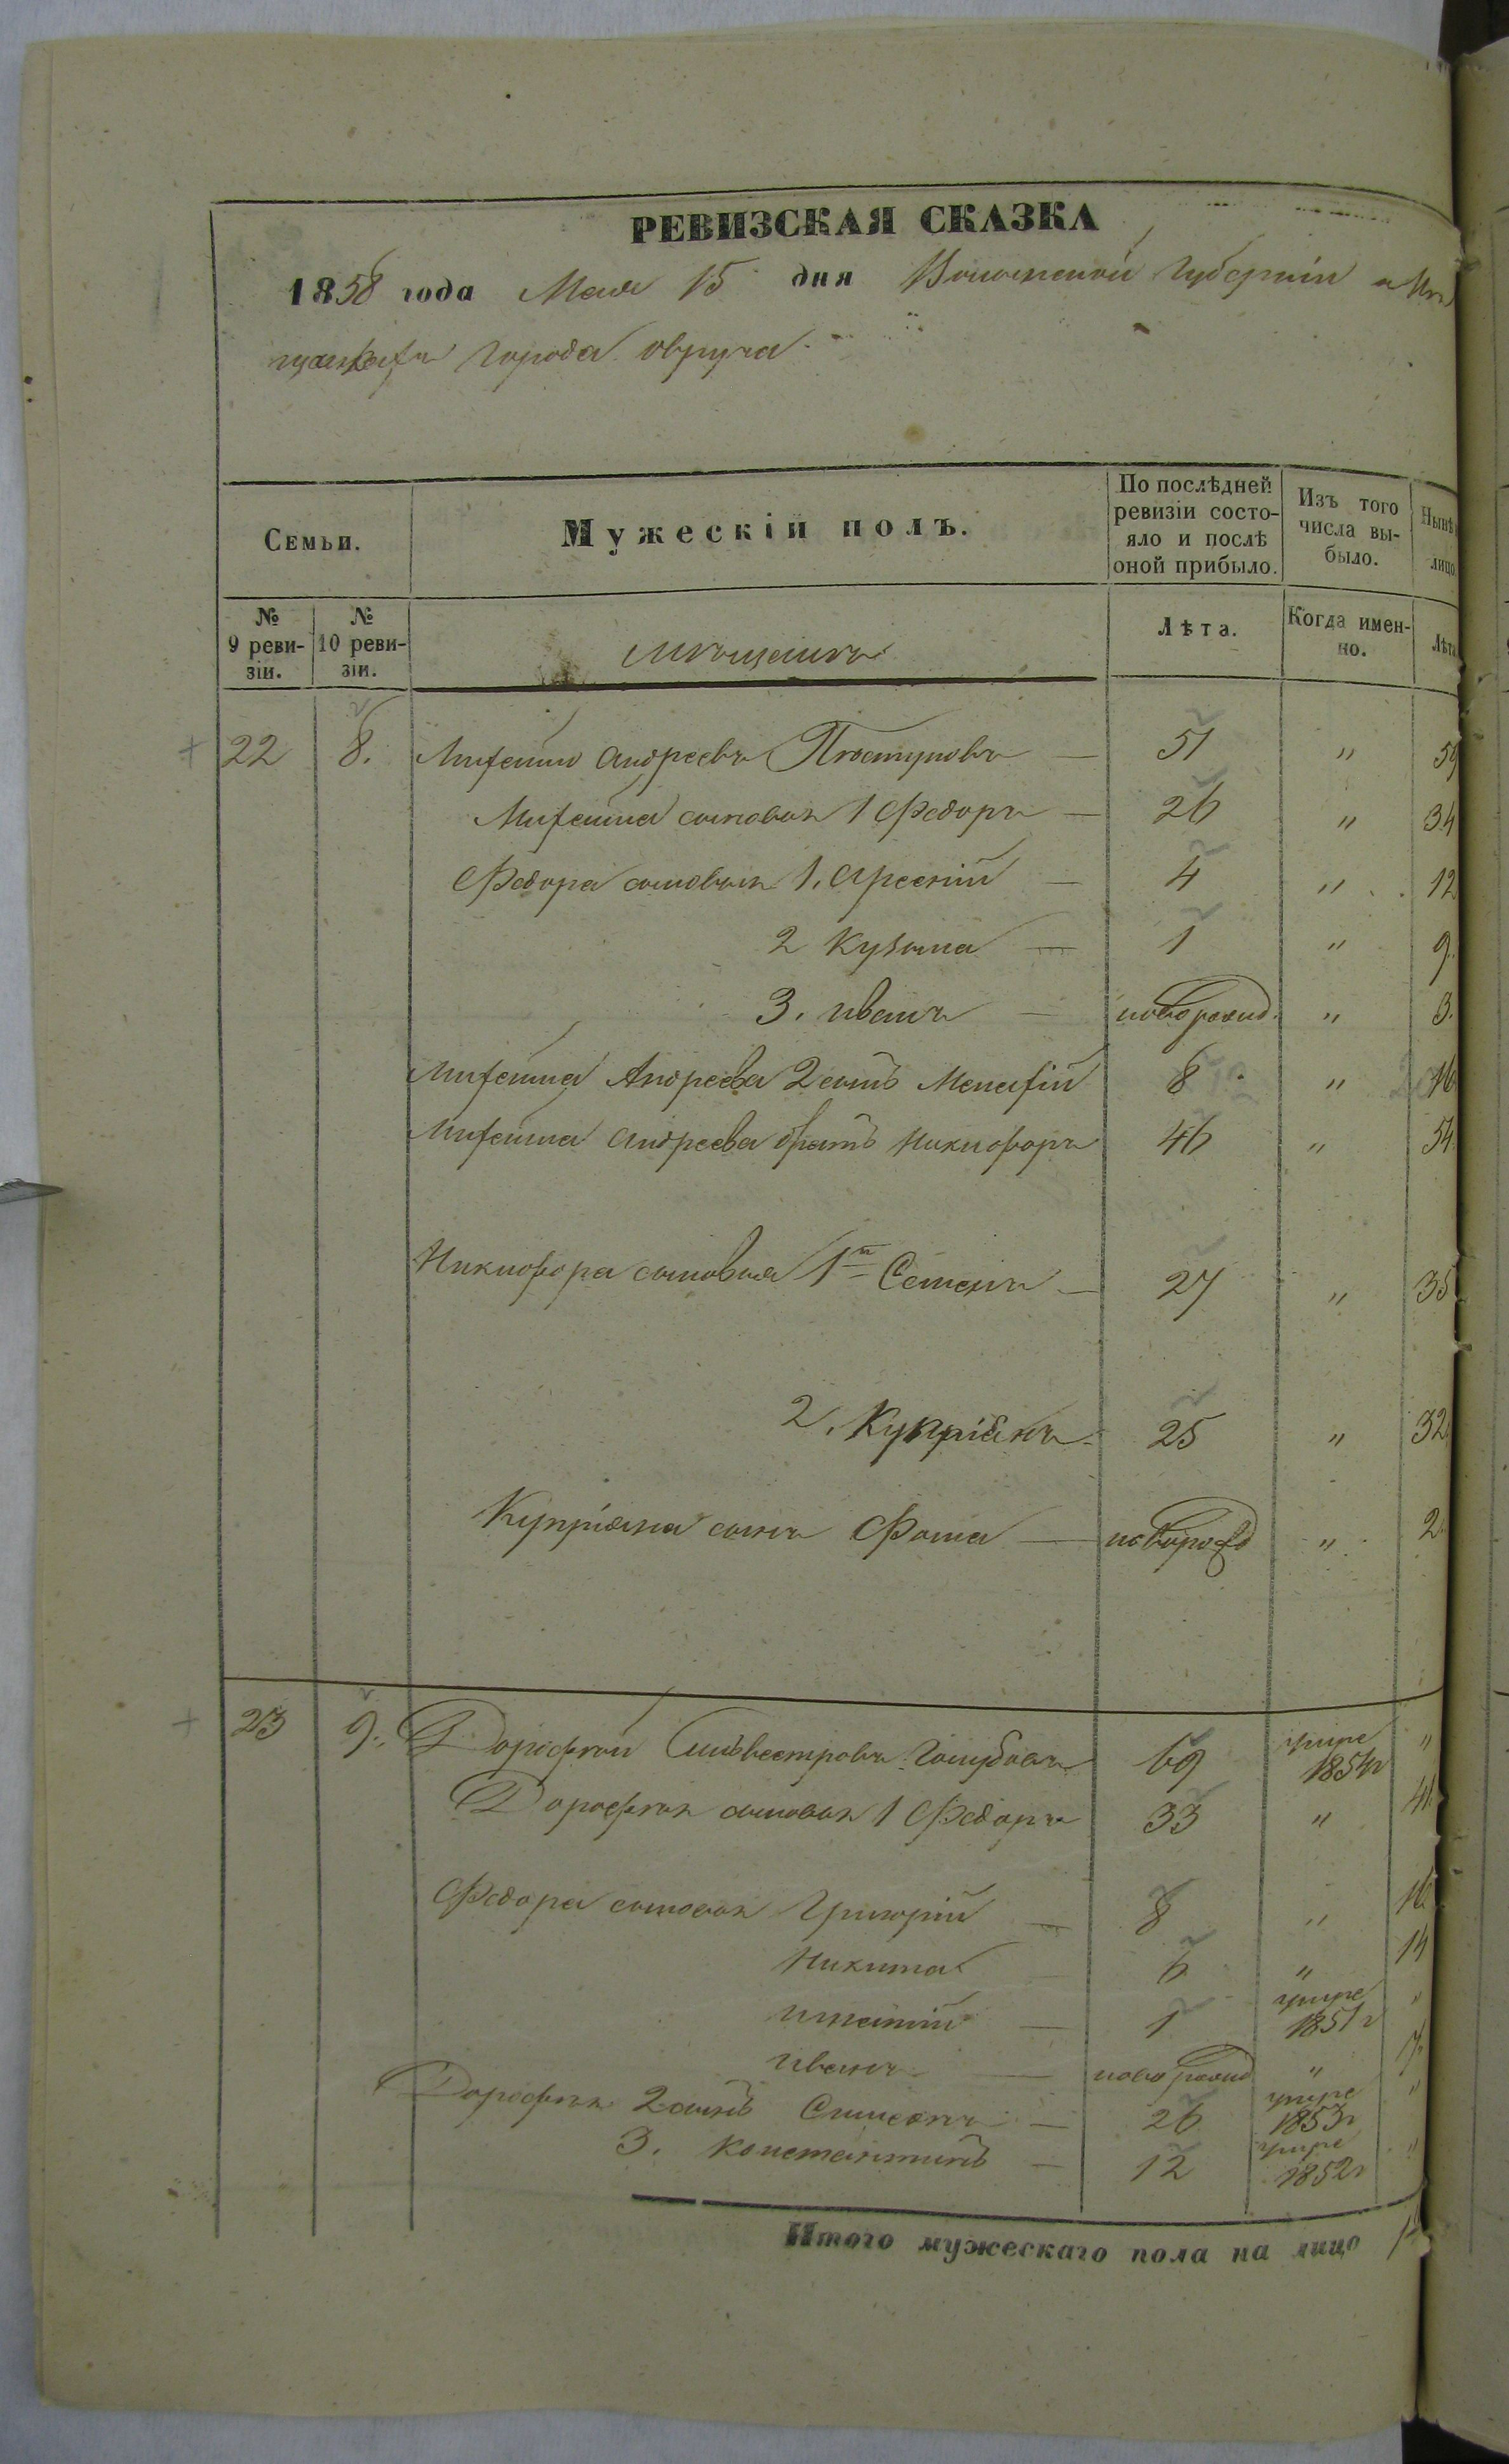 РЕВИЗСКАЯ СКАЗКА
1858 года Мая 15 дня Волынской губерніи о мѣ
щанахъ города овруча
Семьи.
Мужескій полъ.
По послѣдней ревизіи состо-
яло и послѣ
оной прибыло.
Изъ того
числа вы-
было.
Нынѣ
лицо
№
9 реви-
зіи.
№
10 реви-
зіи.
мѣщанъ
Лѣта.
Когда имен-
но.
Лѣта
22 8. Андреевъ 51 " 59
сыновья 1 Федоръ — 26 " 34
Федора сыновья 1. Арсеній — 4 " 12
2 Кузьма — 1 " 9.
3. иванъ — новорожд. " 3.
Андреева 2 сынъ 8 " 16
Андреева братъ Никифоръ 46 " 54
Никифора сыновья 1й Семенъ — 27 " 35
2. Купріянъ 25 " 32
Купріяна сынъ Фома — новорожд " 2.
23 9. Дорофей Сильвестровъ 69 умре 1854г "
Дорофея сыновья 1 Федоръ 33 " 41.
Федора сыновья Григорій — 8 " 16
Никита — 6 " 14
игнатій — 1 умре 1851г "
иванъ — новорожд " 7.
Дорофея 2 сынъ Симеонъ — 26 умре 1853г "
3. Константинъ — 12 умре 1852г "
Итого мужескаго пола на лицо